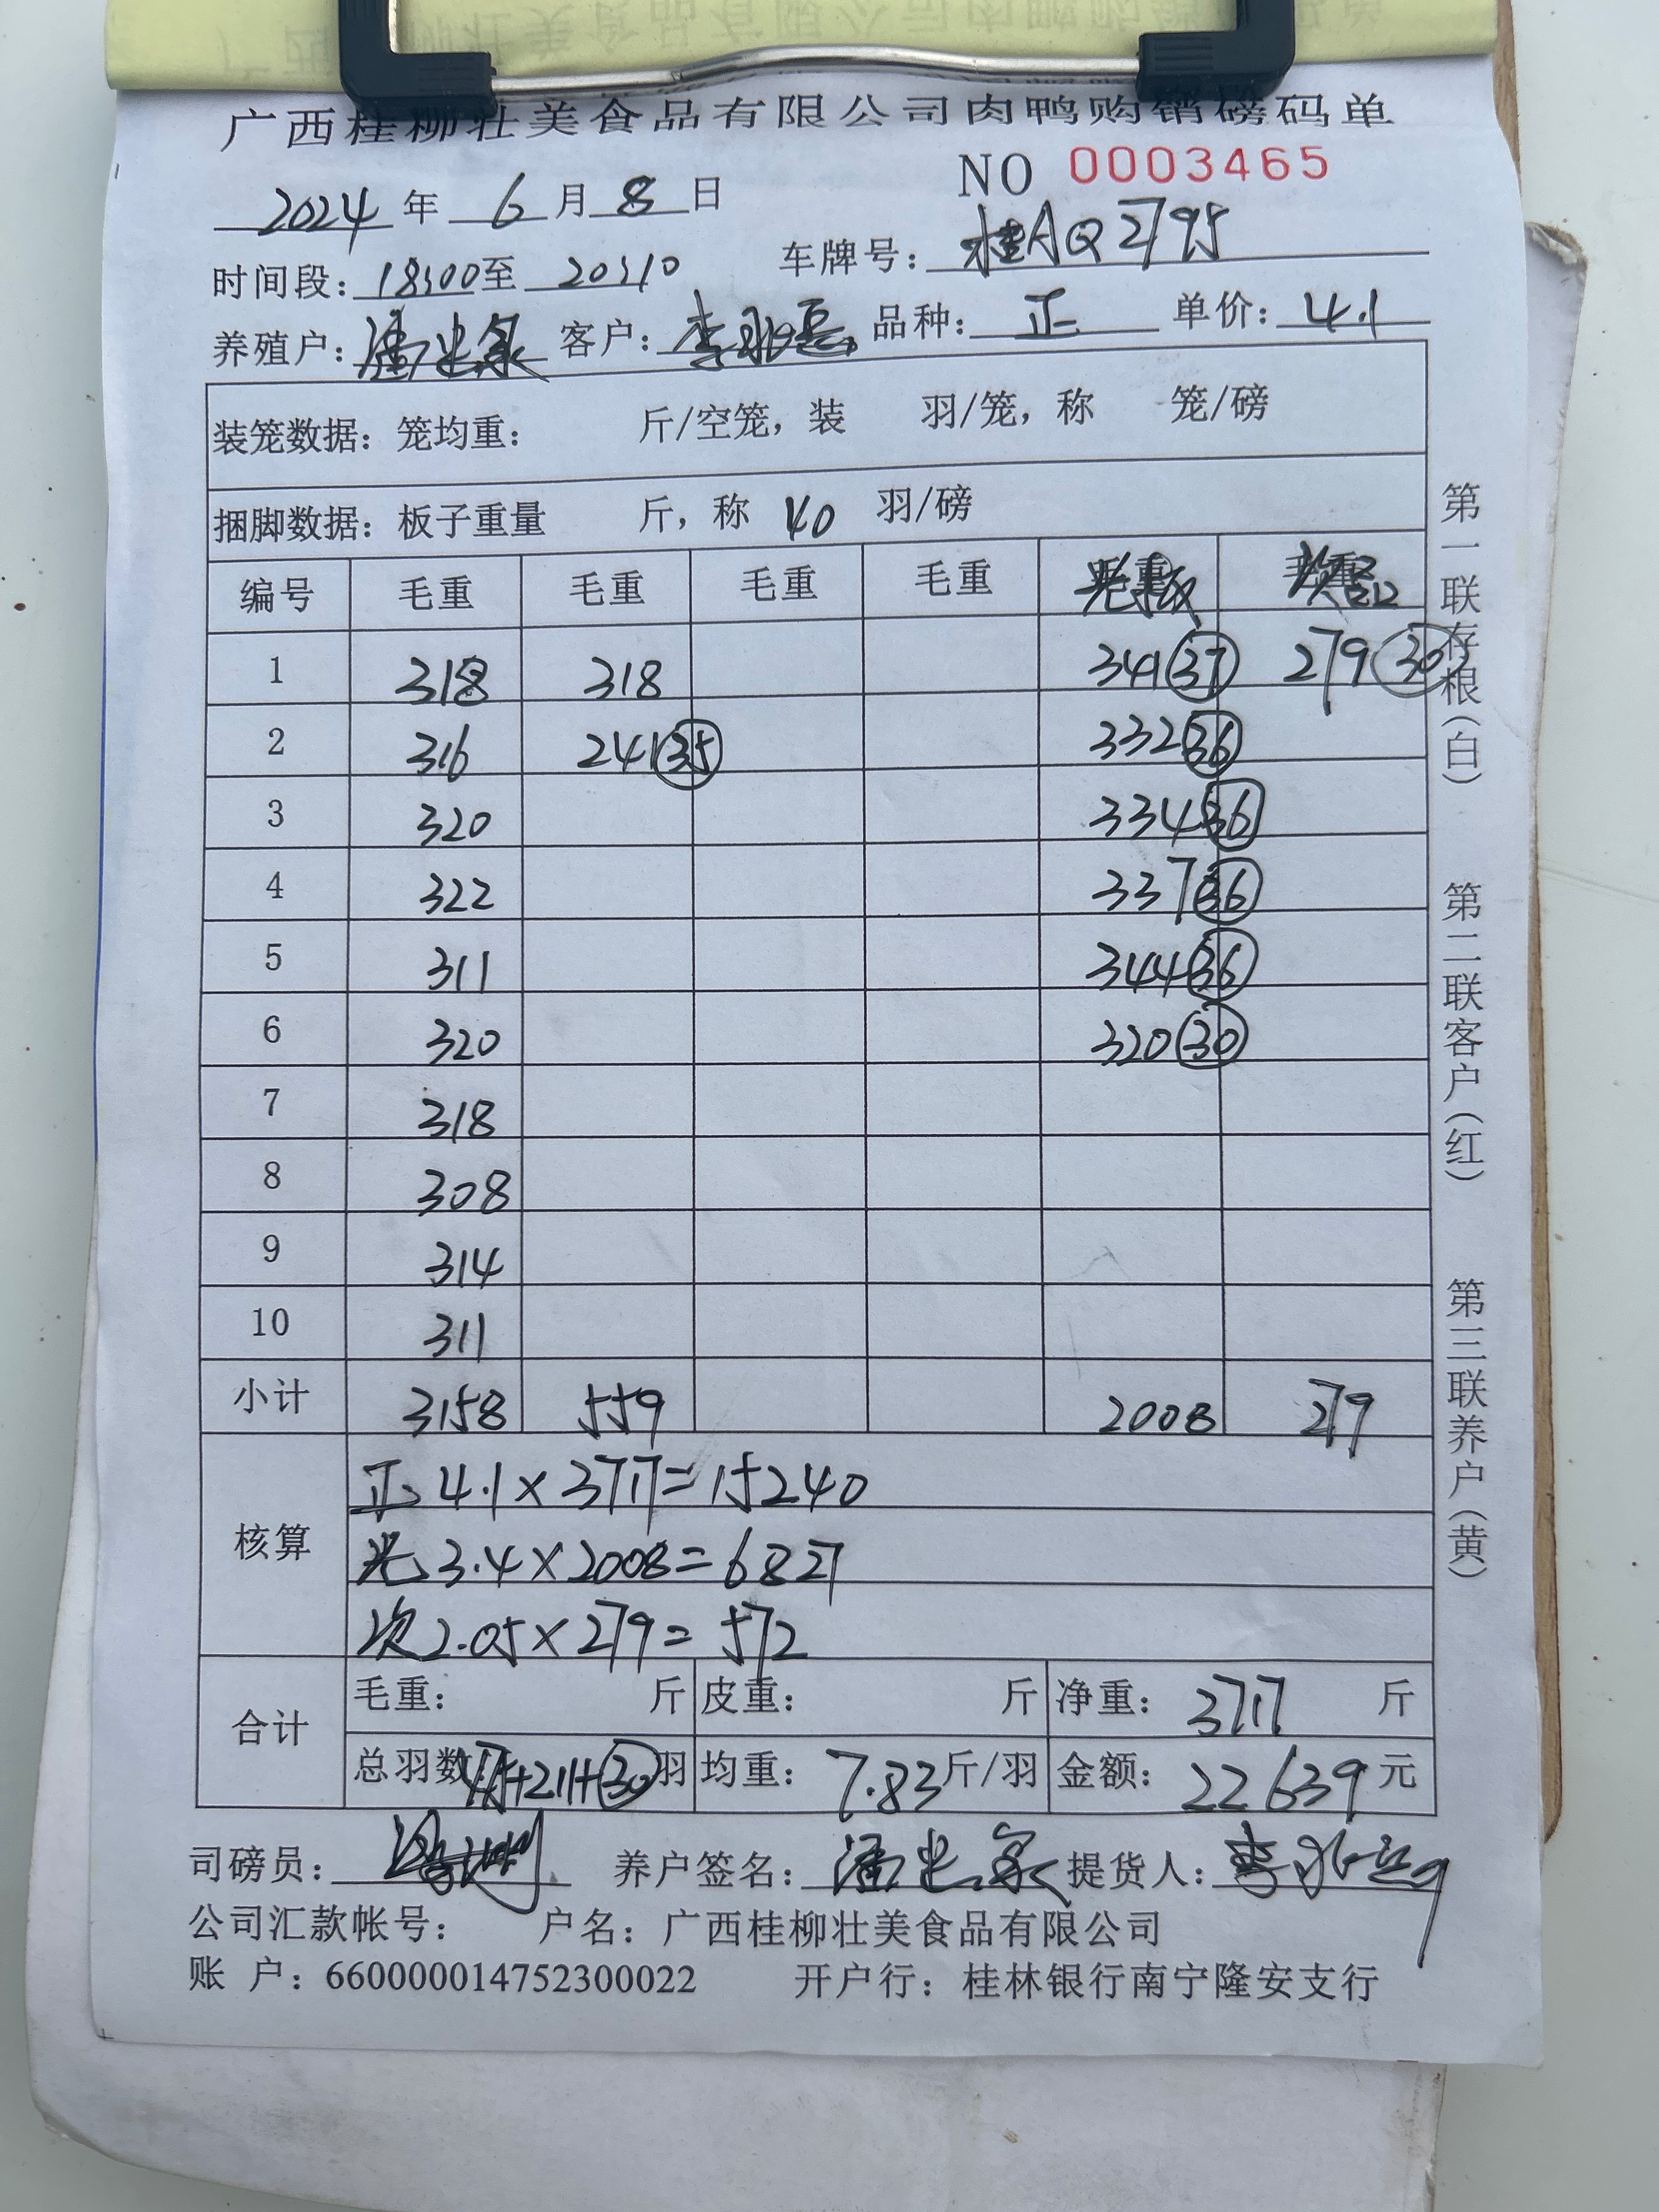 广西桂柳壮美食品有限公司肉鸭购销磅码单
NO 0003465
2024 年 6 月 8 日
时间段：18:00至 20:10 车牌号：桂AQ2795
养殖户： 客户：李 品种：正 单价：4.1
装笼数据：笼均重： 斤/空笼，装 羽/笼，称 笼/磅
捆脚数据：板子重量 斤，称 40 羽/磅
编号 毛重 毛重 毛重 毛重
1 318 318 341 37 279 30
2 316 241 35 332 36
3 320 334 36
4 322 337 36
5 311 344 36
6 320 320 30
7 318
8 308
9 314
10 311
小计 3158 559 2008 279
核算
正 4.1×3717=15240
光 3.4×2008=6827
次 2.05×279=572
合计
毛重： 斤 皮重： 斤 净重：3717 斤
总羽数：+211+30 羽 均重：7.83斤/羽 金额：22639元
司磅员： 养户签名： 提货人：李
公司汇款帐号： 户名：广西桂柳壮美食品有限公司
账 户：660000014752300022 开户行：桂林银行南宁隆安支行
第一联存根（白） 第二联客户（红） 第三联养户（黄）